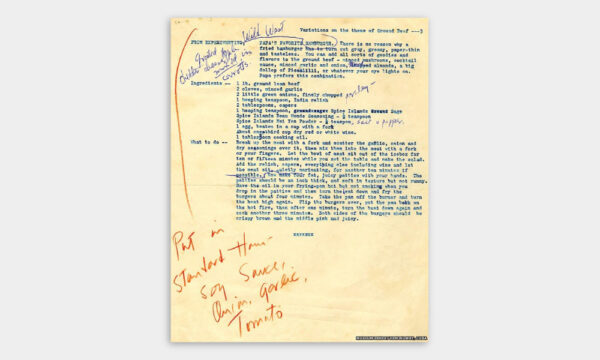 Variations on the theme of Ground Beef ---3
Wild West
FROM EXPERIMENTING, PAPA'S FAVORITE HAMBURGER. There is no reason why a
fried hamburger has to turn out gray, greasy, paper-thin
and tasteless. You can add all sorts of goodies and
flavors to the ground beef - minced mushrooms, cocktail
sauce, minced garlic and onion, chopped almonds, a big
dollop of Piccalilli, or whatever your eye lights on.
Papa prefers this combination.
Grated
cheddar cheese
minced in
carrots
Ingredients -- 1 lb. ground lean beef
2 cloves, minced garlic
2 little green onions, finely chopped parsley
1 heaping teaspoon, India relish
2 tablespoons, capers
1 heaping teaspoon, Spice Islands Sage
Spice Islands Beau Monde Seasoning - ½ teaspoon
Spice Islands Mei Yen Powder - ½ teaspoon, salt & pepper.
1 egg, beaten in a cup with a fork
About one-third cup dry red or white wine.
1 tablespoon cooking oil.
What to do -- Break up the meat with a fork and scatter the garlic, onion and
dry seasonings over it, then mix them into the meat with a fork
or your fingers. Let the bowl of meat sit out of the icebox for
ten or fifteen minutes while you set the table and make the salad.
Add the relish, capers, everything else including wine and let
the meat sit, quietly marinating, for another ten minutes if
possible. Now make four fat, juicy patties with your hands. The
patties should be an inch thick, and soft in texture but not runny.
Have the oil in your frying-pan hot but not smoking when you
drop in the patties and then turn the heat down and fry the
burgers about four minutes. Take the pan off the burner and turn
the heat high again. Flip the burgers over, put the pan back on
the hot fire, then after one minute, turn the heat down again and
cook another three minutes. Both sides of the burgers should be
crispy brown and the middle pink and juicy.
Put in
Standard Ham-
Soy Sauce,
Onion, Garlic,
Tomato